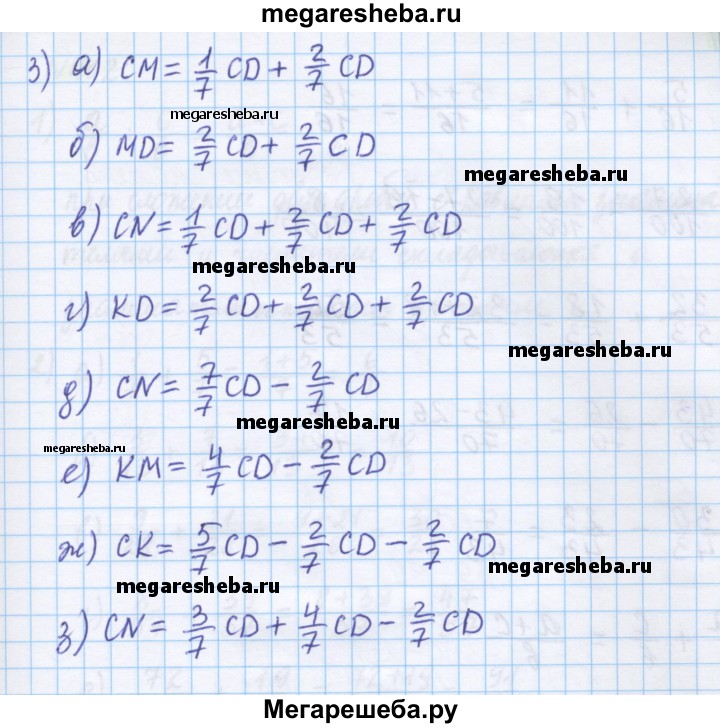 megaresheba.ru
3) а) CM = 1/7 CD + 2/7 CD
megaresheba.ru
б) MD = 2/7 CD + 2/7 CD
megaresheba.ru
в) CN = 1/7 CD + 2/7 CD + 2/7 CD
megaresheba.ru
г) KD = 2/7 CD + 2/7 CD + 2/7 CD
megaresheba.ru
д) CN = 7/7 CD - 2/7 CD
megaresheba.ru
megaresheba.ru
е) KM = 4/7 CD - 2/7 CD
ж) CK = 5/7 CD - 2/7 CD - 2/7 CD
megaresheba.ru
megaresheba.ru
з) CN = 3/7 CD + 4/7 CD - 2/7 CD
Мегарешеба.ру